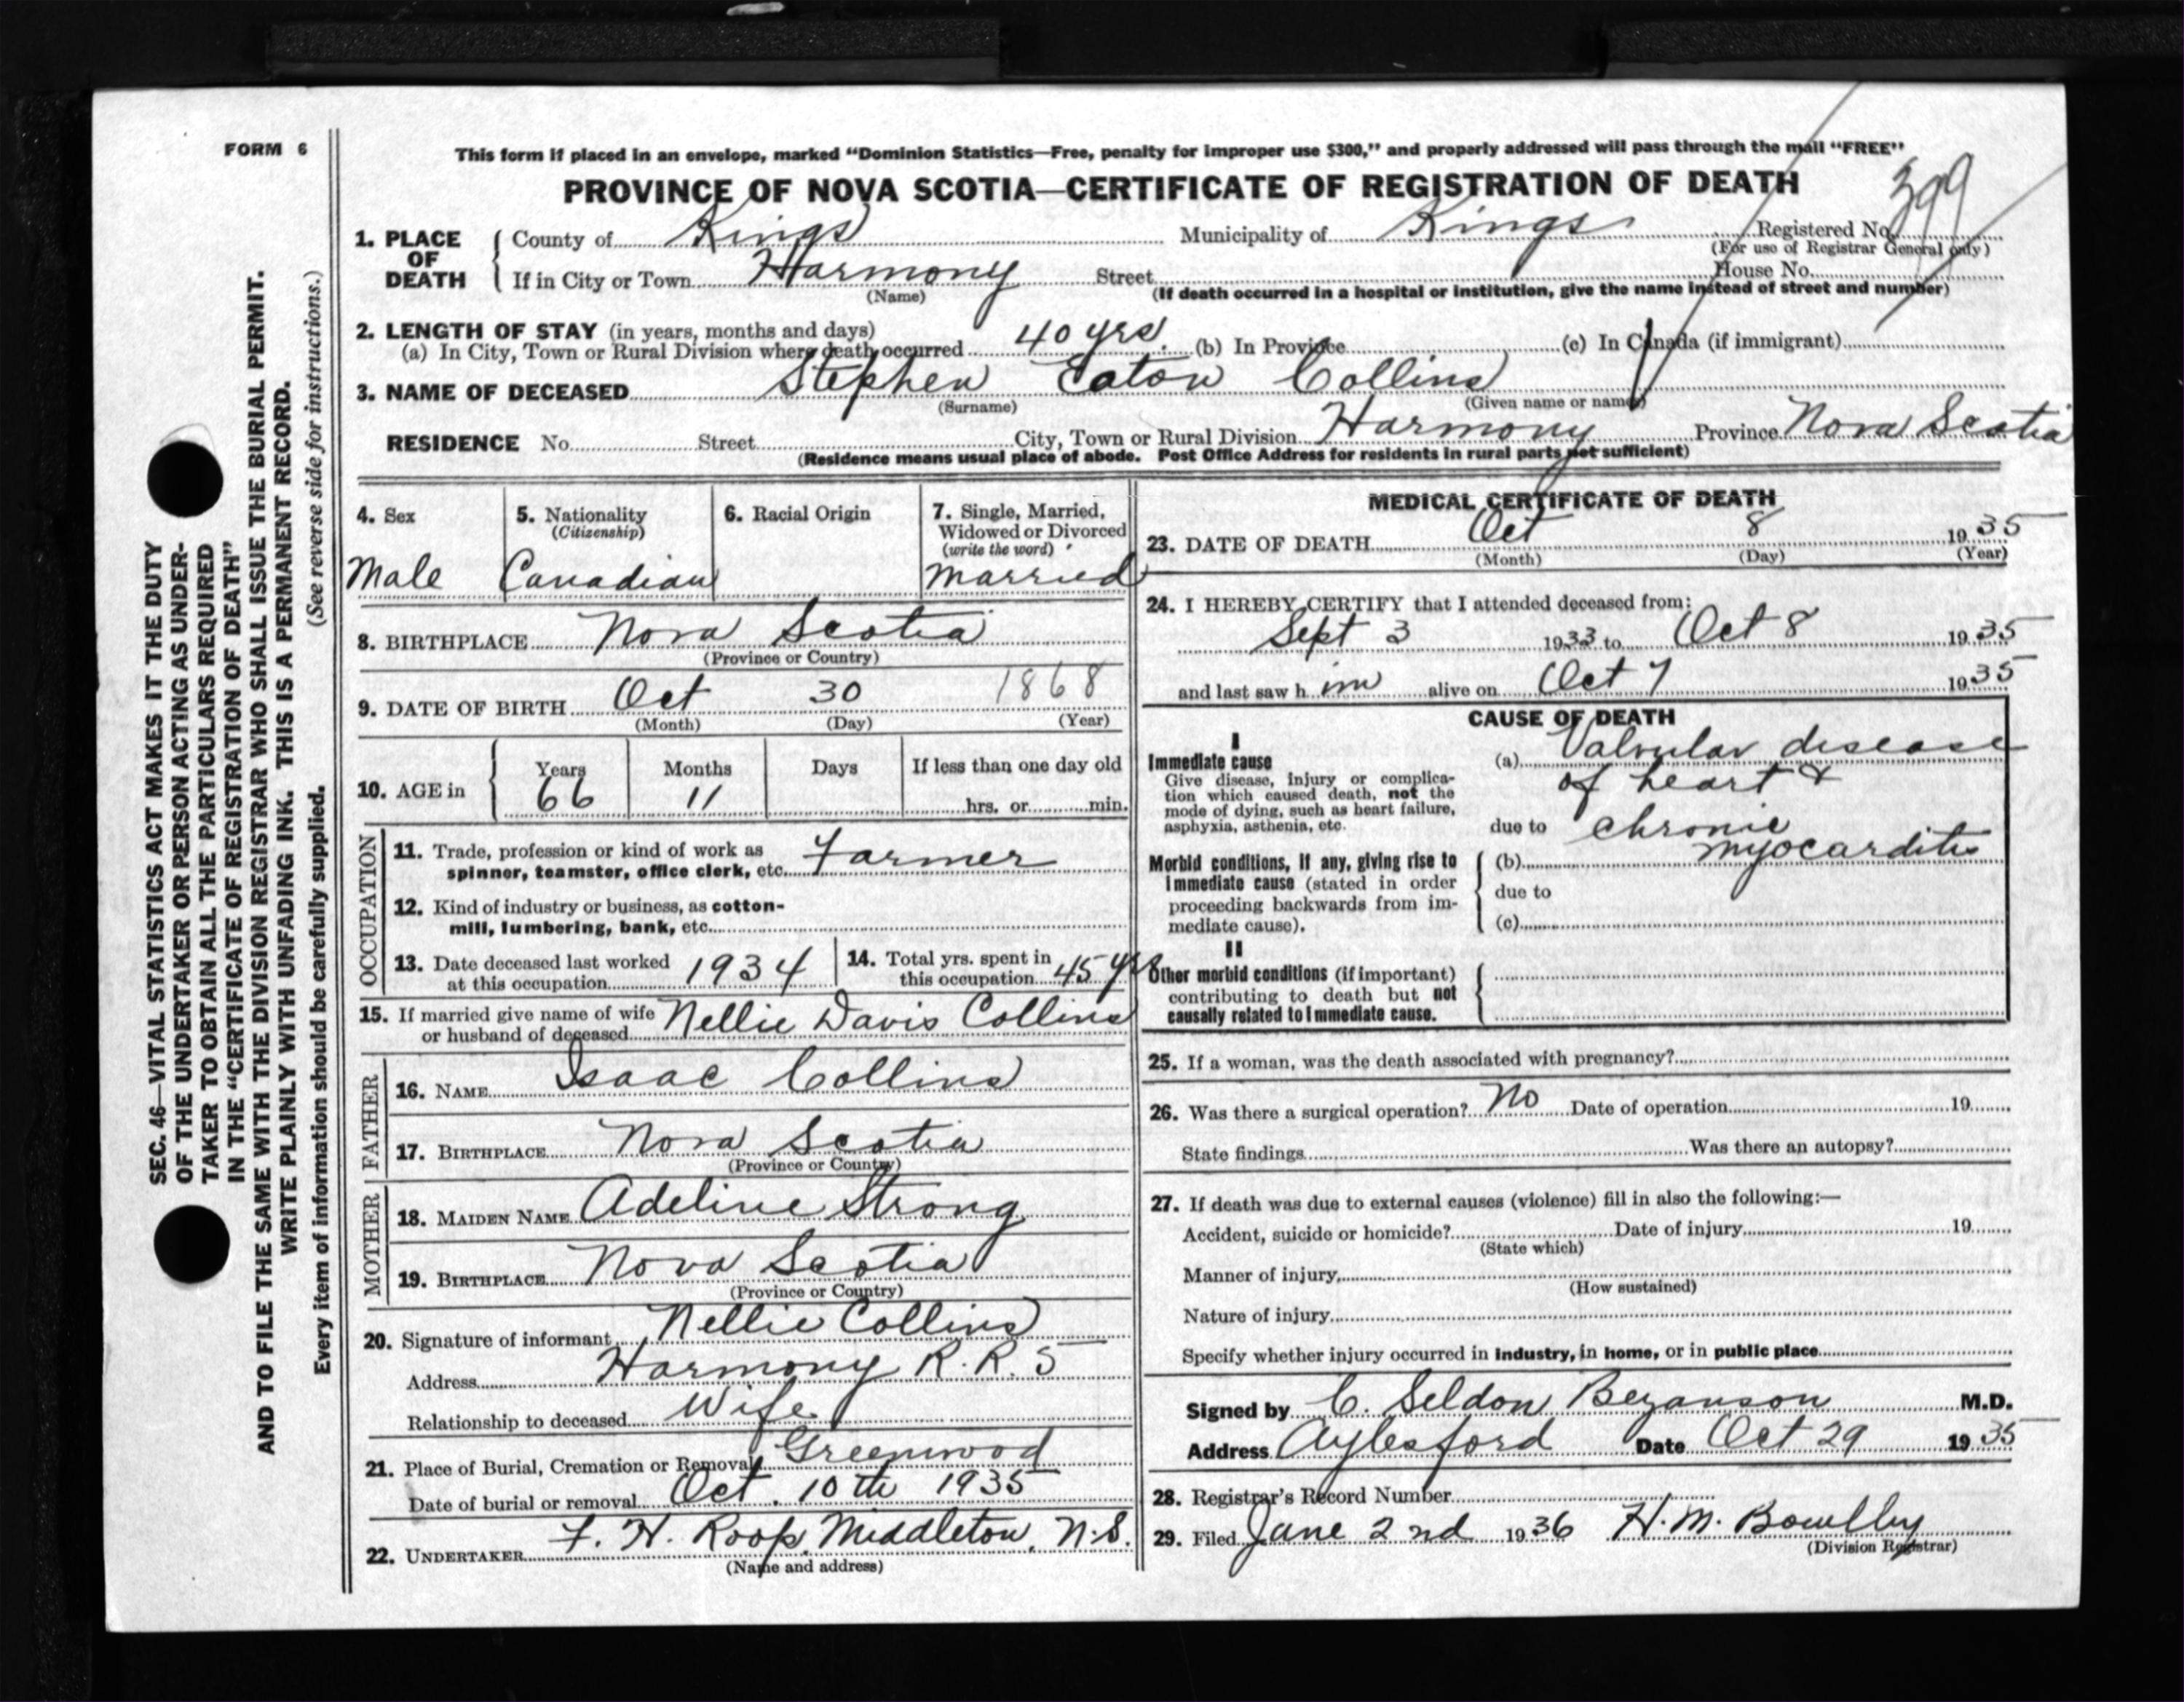 FORM 6
This form if placed in an envelope, marked “Dominion Statistics—Free, penalty for improper use $300,” and properly addressed will pass through the mail “FREE”
PROVINCE OF NOVA SCOTIA—CERTIFICATE OF REGISTRATION OF DEATH
399
1. PLACE OF DEATH { County of Kings Municipality of Kings Registered No.
(For use of Registrar General only)
If in City or Town Harmony Street House No.
(Name) (If death occurred in a hospital or institution, give the name instead of street and number)
2. LENGTH OF STAY (in years, months and days)
(a) In City, Town or Rural Division where death occurred 40 yrs. (b) In Province (c) In Canada (if immigrant)
3. NAME OF DECEASED Stephen Eaton Collins
(Surname) (Given name or names)
RESIDENCE No. Street City, Town or Rural Division Harmony Province Nova Scotia
(Residence means usual place of abode. Post Office Address for residents in rural parts not sufficient)
4. Sex
Male
5. Nationality
(Citizenship)
Canadian
6. Racial Origin
7. Single, Married,
Widowed or Divorced
(write the word)
Married
8. BIRTHPLACE Nova Scotia
(Province or Country)
9. DATE OF BIRTH Oct 30 1868
(Month) (Day) (Year)
10. AGE in { Years Months Days If less than one day old
66 11 hrs. or min.
OCCUPATION
11. Trade, profession or kind of work as
spinner, teamster, office clerk, etc. Farmer
12. Kind of industry or business, as cotton-
mill, lumbering, bank, etc.
13. Date deceased last worked
at this occupation 1934
14. Total yrs. spent in
this occupation 45 yrs
15. If married give name of wife
or husband of deceased Nellie Davis Collins
FATHER
16. NAME Isaac Collins
17. BIRTHPLACE Nova Scotia
(Province or Country)
MOTHER
18. MAIDEN NAME Adeline Strong
19. BIRTHPLACE Nova Scotia
(Province or Country)
20. Signature of informant Nellie Collins
Address Harmony R.R. 5
Relationship to deceased Wife
21. Place of Burial, Cremation or Removal Greenwood
Date of burial or removal Oct. 10th 1935
22. UNDERTAKER F. H. Roop, Middleton, N.S.
(Name and address)
MEDICAL CERTIFICATE OF DEATH
23. DATE OF DEATH Oct 8 1935
(Month) (Day) (Year)
24. I HEREBY CERTIFY that I attended deceased from:
Sept 3 1933 to Oct 8 1935
and last saw him alive on Oct 7 1935
CAUSE OF DEATH
I
Immediate cause
Give disease, injury or complica-
tion which caused death, not the
mode of dying, such as heart failure,
asphyxia, asthenia, etc.
(a) Valvular disease
of heart &
due to chronic
Morbid conditions, if any, giving rise to
immediate cause (stated in order
proceeding backwards from im-
mediate cause).
(b) myocarditis
due to
(c)
II
Other morbid conditions (if important)
contributing to death but not
causally related to immediate cause.
25. If a woman, was the death associated with pregnancy?
26. Was there a surgical operation? No Date of operation 19
State findings Was there an autopsy?
27. If death was due to external causes (violence) fill in also the following:—
Accident, suicide or homicide? Date of injury 19
(State which)
Manner of injury
(How sustained)
Nature of injury
Specify whether injury occurred in industry, in home, or in public place
Signed by C. Seldon Bezanson M.D.
Address Aylesford Date Oct 29 1935
28. Registrar's Record Number
29. Filed Jane 2nd 1936 H. M. Bowlby
(Division Registrar)
SEC. 46—VITAL STATISTICS ACT MAKES IT THE DUTY
OF THE UNDERTAKER OR PERSON ACTING AS UNDER-
TAKER TO OBTAIN ALL THE PARTICULARS REQUIRED
IN THE “CERTIFICATE OF REGISTRATION OF DEATH”
AND TO FILE THE SAME WITH THE DIVISION REGISTRAR WHO SHALL ISSUE THE BURIAL PERMIT.
WRITE PLAINLY WITH UNFADING INK. THIS IS A PERMANENT RECORD.
Every item of information should be carefully supplied. (See reverse side for instructions.)